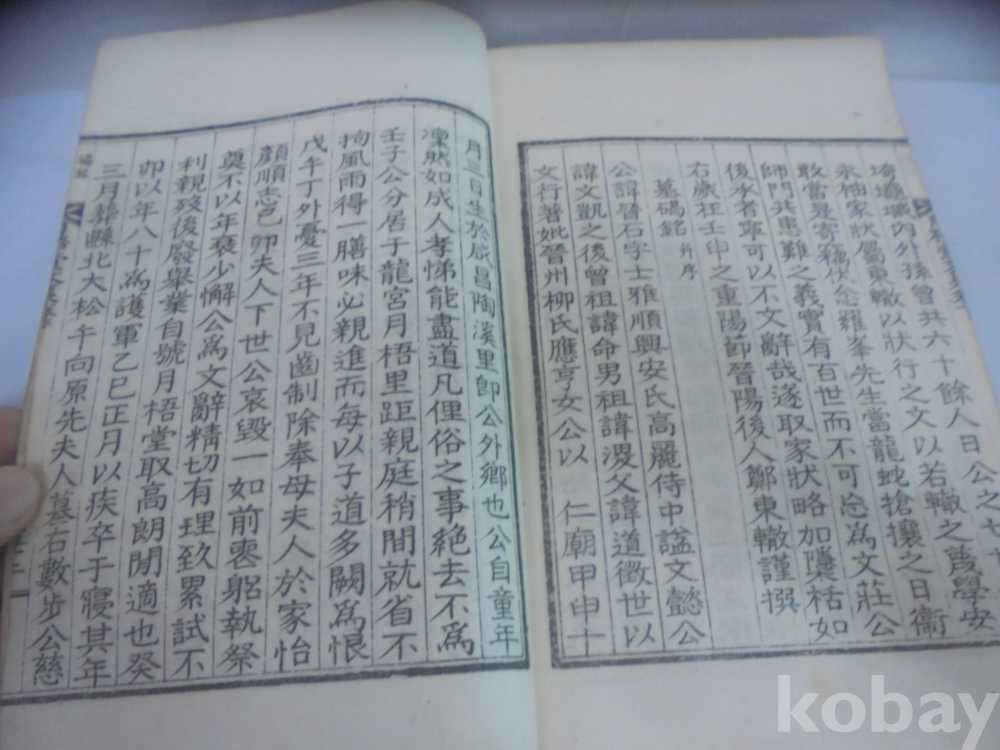 內外孫曾共六十餘人日公之七
永柚家狀屬東轍以狀行之文以若轍之蔑學安
敢當是寄竊伏念羅峯先生當龍蛇搶攘之日衛
師門共患難之義實有百世而不可忘爲文莊公
後承者寧可以不文辭哉遂取家狀略加檃栝如
右歲在壬申之重陽節晉陽後人鄭東轍謹撰
墓碣銘 幷序
公諱晉石字士雅順興安氏高麗侍中諡文懿公
諱文凱之後曾祖諱命男祖諱父諱道徵世以
文行著妣晉州柳氏應亨女公以 仁廟甲申十
月三日生於咸昌陶溪里卽公外鄕也公自童年
凜然如成人孝悌能盡道凡俚俗之事絶去不爲
壬子公分居于龍宮月梧里距親庭稍間就省不
拘風雨得一膳味必親進而每以子道多闕爲恨
戊午丁外憂三年不見齒制除奉母夫人於家怡
顔順志邑卯夫人下世公哀毀一如前喪躬執祭
奠不以年衰少懈公爲文辭精切有理致累試不
利親歿後廢擧業自號月梧堂取高朗閒適也癸
卯以年八十爲護軍乙巳正月以疾卒于寢其年
三月葬縣北大松午向原先夫人墓右數步公慈
kobay